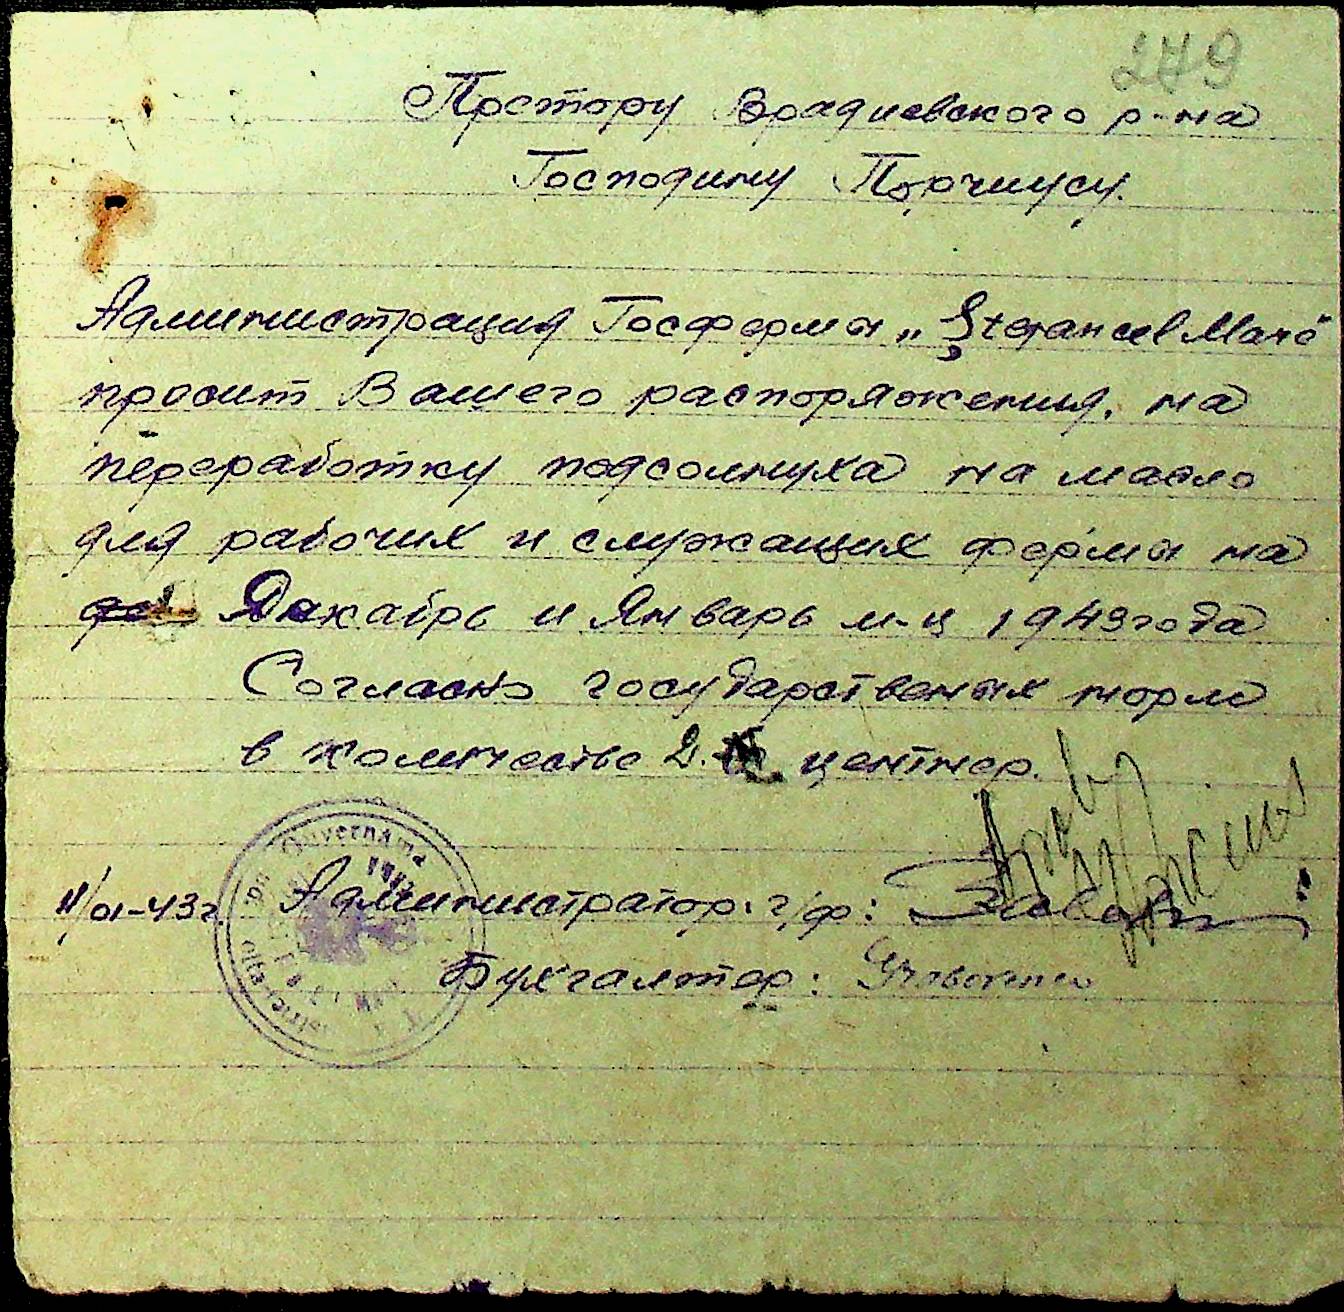 279
Претору Врадиевского р-на
Господину Порчиусу.
Администрация Госфермы „Ştefancel Mare"
просит Вашего распоряжения, на
переработку подсолнуха на масло
для рабочих и служащих фермы на
Декабрь и Январь м-ц 1943 года
Согласно государственых норм
в количестве 2. центнер.
11/01-43г. Администратор г/ф:
Бухгалтер:
Guvernam